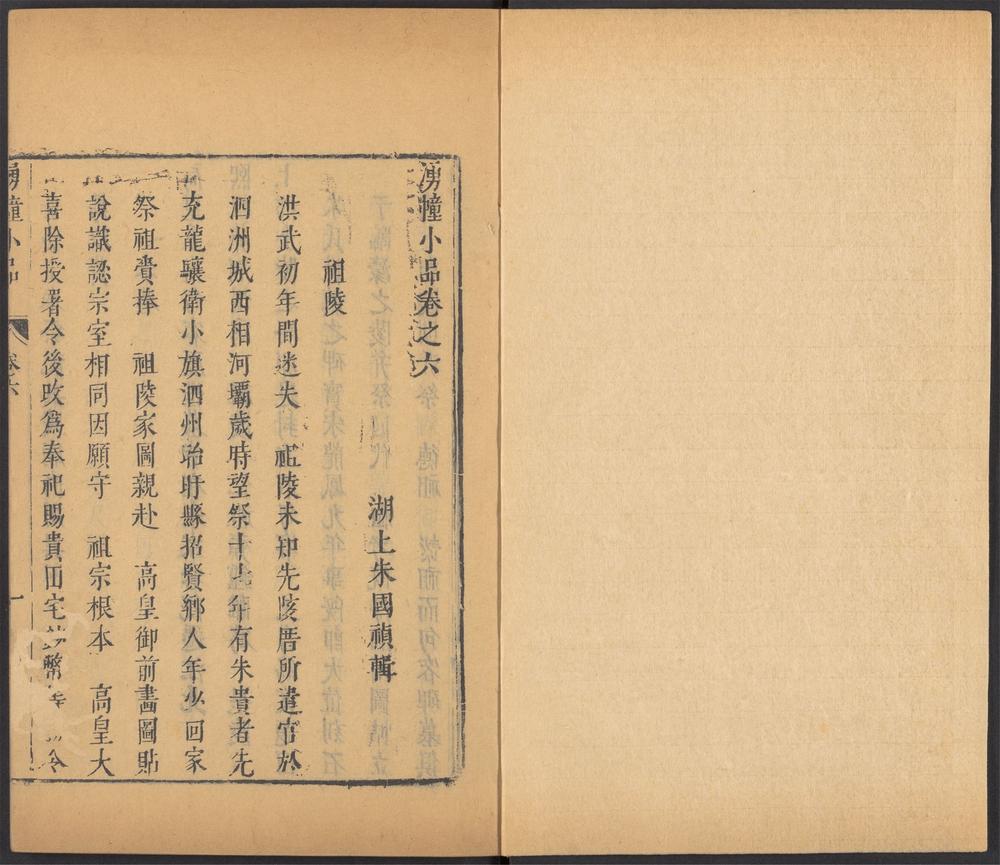 湧幢小品卷之六
湖上朱國禎輯
祖陵
洪武初年間迷失 祖陵未知先陵厝所遣官於
泗洲城西相河壩歲時望祭十七年有朱貴者先
充龍驤衛小旗泗州盱眙縣招賢鄉人年少回家
祭祖賫捧 祖陵家圖親赴 高皇御前畫圖貼
說識認宗室相同因願守 祖宗根本 高皇大
喜除授署令後改爲奉祀賜貴田宅鈔幣 令
湧幢小品 卷六 一